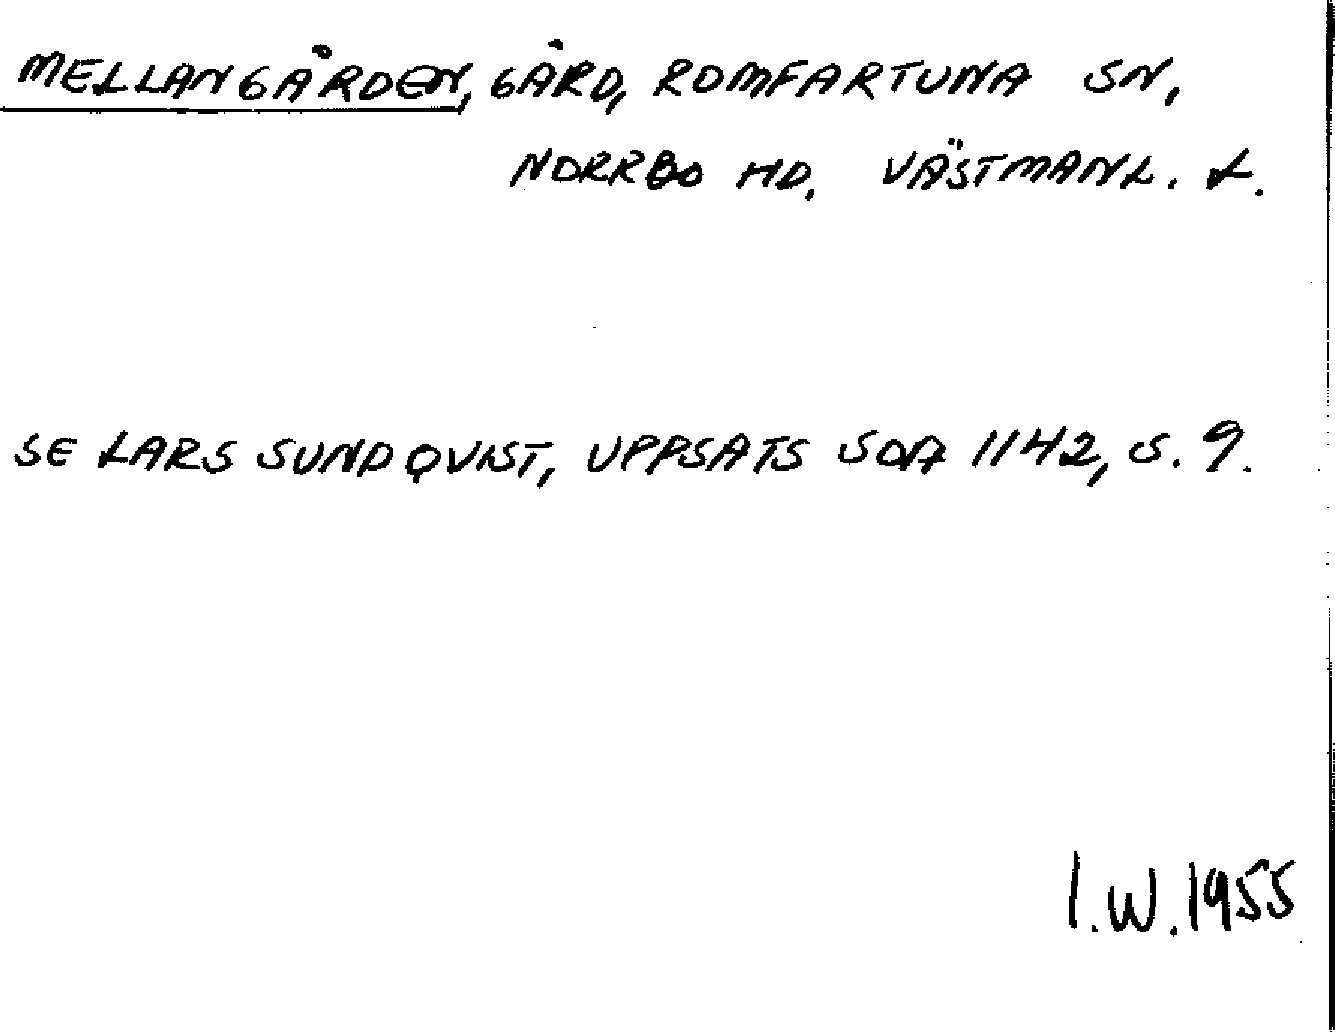 MELLANGÅRDEN, GÅRD, ROMFARTUNA SN,
NORRBO HD. VÄSTMANL. L.
SE LARS SUNDQVIST, UPPSATS SOA 1142, S. 9.
I.W.1955